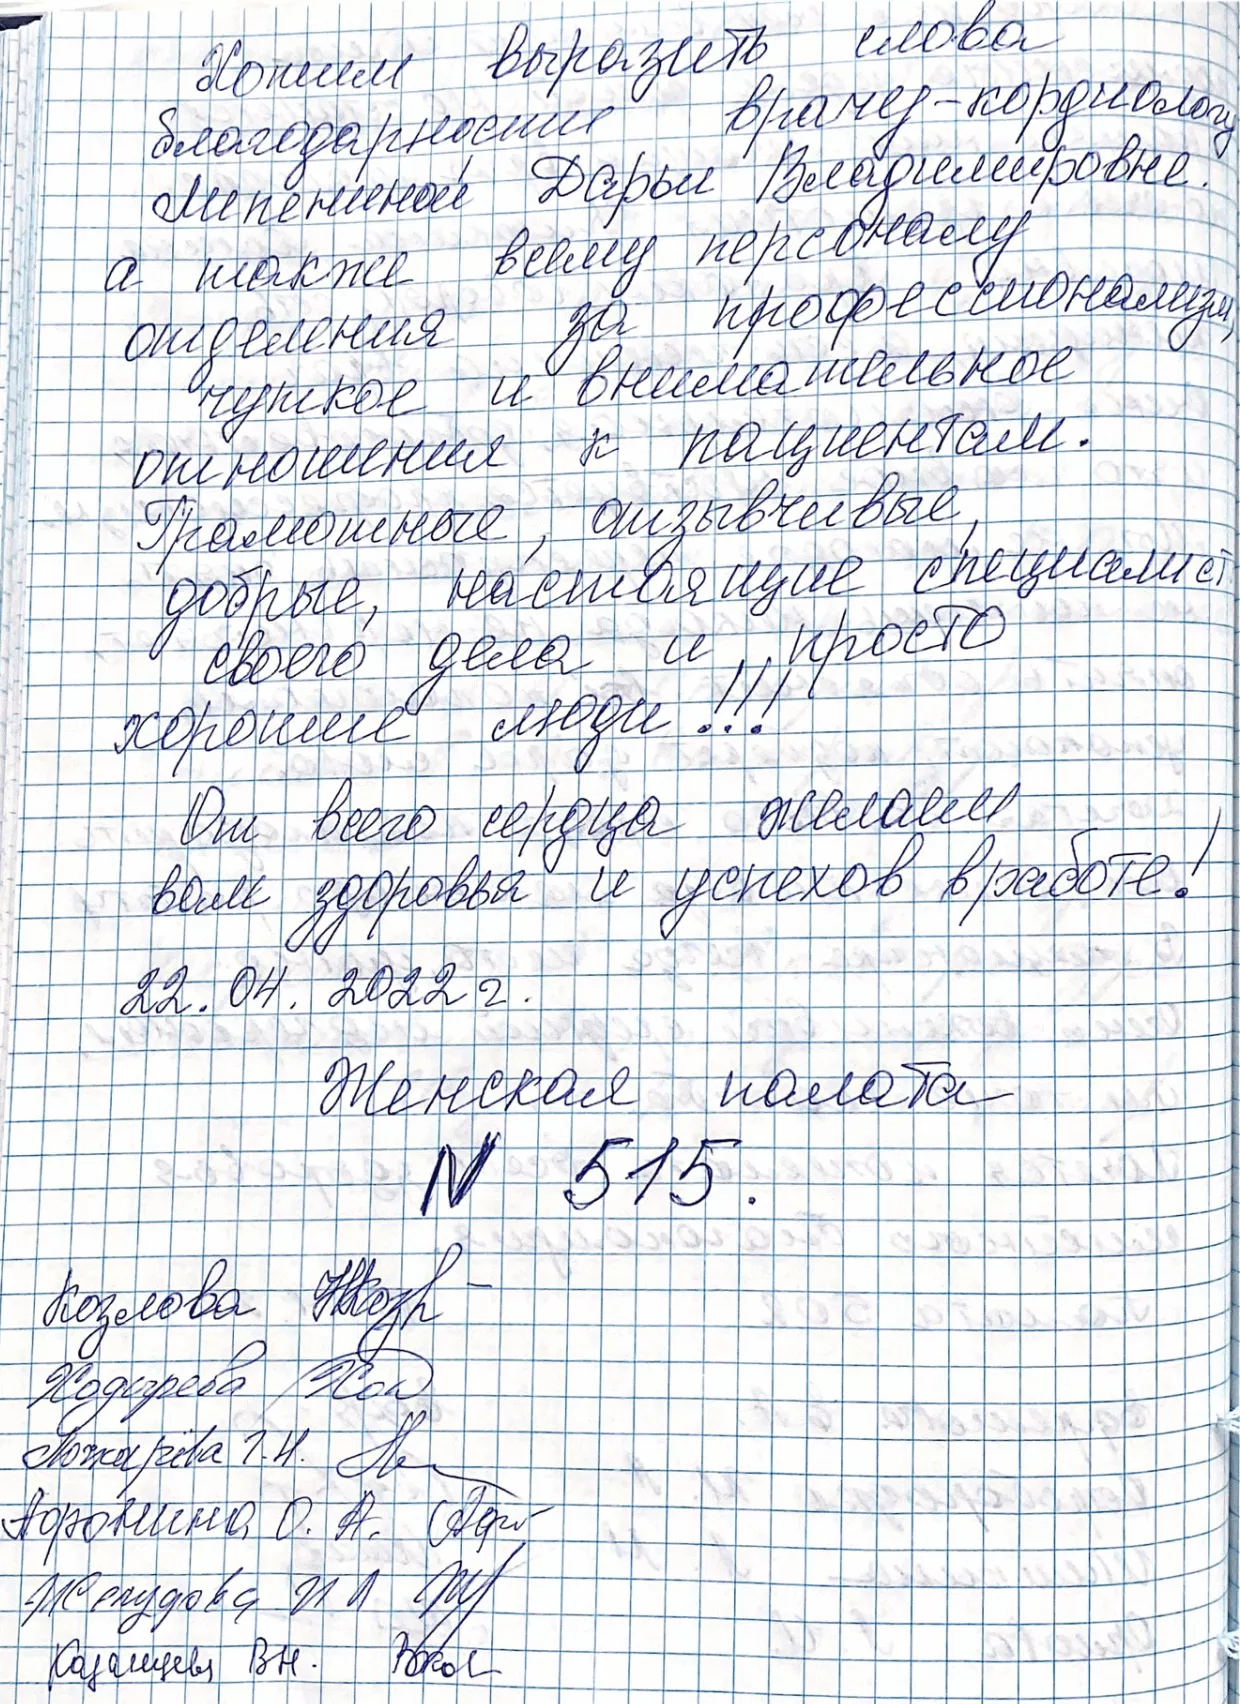 Хотим выразить слова
благодарности врачу-кардиологу
Мипениной Дарьи Владимировне.
а также всему персоналу
отделения за профессионализм,
чуткое и внимательное
отношения к пациентам.
Грамотные, отзывчивые,
добрые, настоящие специалист
своего дела и просто
хорошие люди!!!
От всего сердца желаем
вам здоровья и успехов в работе!
22.04.2022 г.
Женская палата
N 515.
Козлова
Ходырева
Пожарова Г.Н.
Афонина О. А.
Желудова И Л
Казанцева В Н.